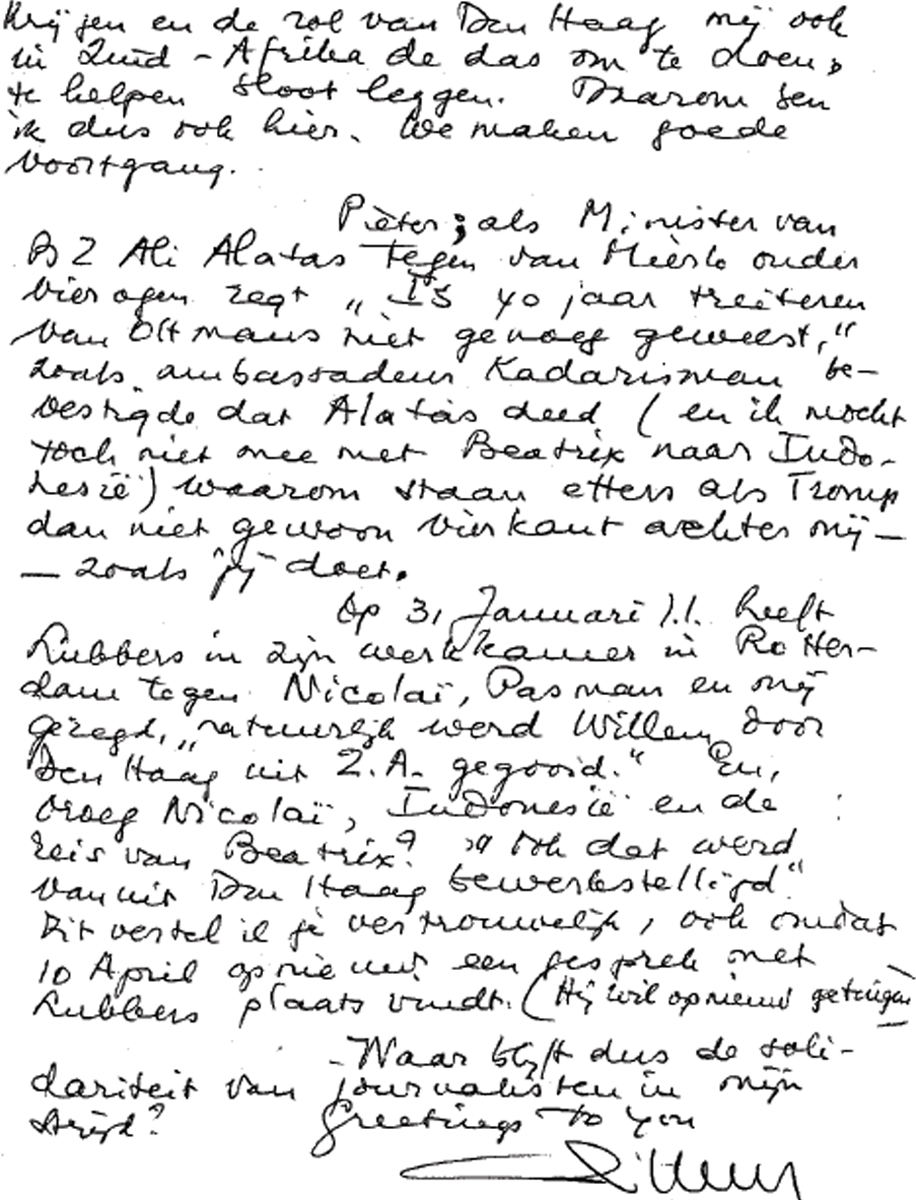 Krijgen en de rol van Den Haag mij ook
in Zuid-Afrika de das om te doen,
te helpen bloot leggen. Daarom ben
ik dus ook hier. We maken goede
voortgang.
Pieter, als Minister van
BZ Ali Alatas tegen van Mierlo onder
vier ogen zegt „Is 40 jaar treiteren
van Oltmans niet genoeg geweest,"
zoals ambassadeur Kadarisman be-
vestigde dat Alatas deed (en ik mocht
toch niet mee met Beatrix naar Indo-
nesië) waarom staan etters als Tromp
dan niet gewoon vierkant achter mij –
– zoals jij doet.
Op 31 Januari j.l. heeft
Lubbers in zijn werkkamer in Rotter-
dam tegen Nicolaï, Pasman en mij
gezegd, „natuurlijk werd Willem door
Den Haag uit Z.A. gegooid." En,
vroeg Nicolaï, Indonesië en de
reis van Beatrix? „Ook dat werd
vanuit Den Haag bewerkstelligd"
Dit vertel ik je vertrouwelijk, ook omdat
10 April opnieuw een gesprek met
Lubbers plaats vindt. (Hij wil opnieuw getuigen
– Waar blijft dus de soli-
dariteit van journalisten in mijn
strijd? Greetings to you
Willem